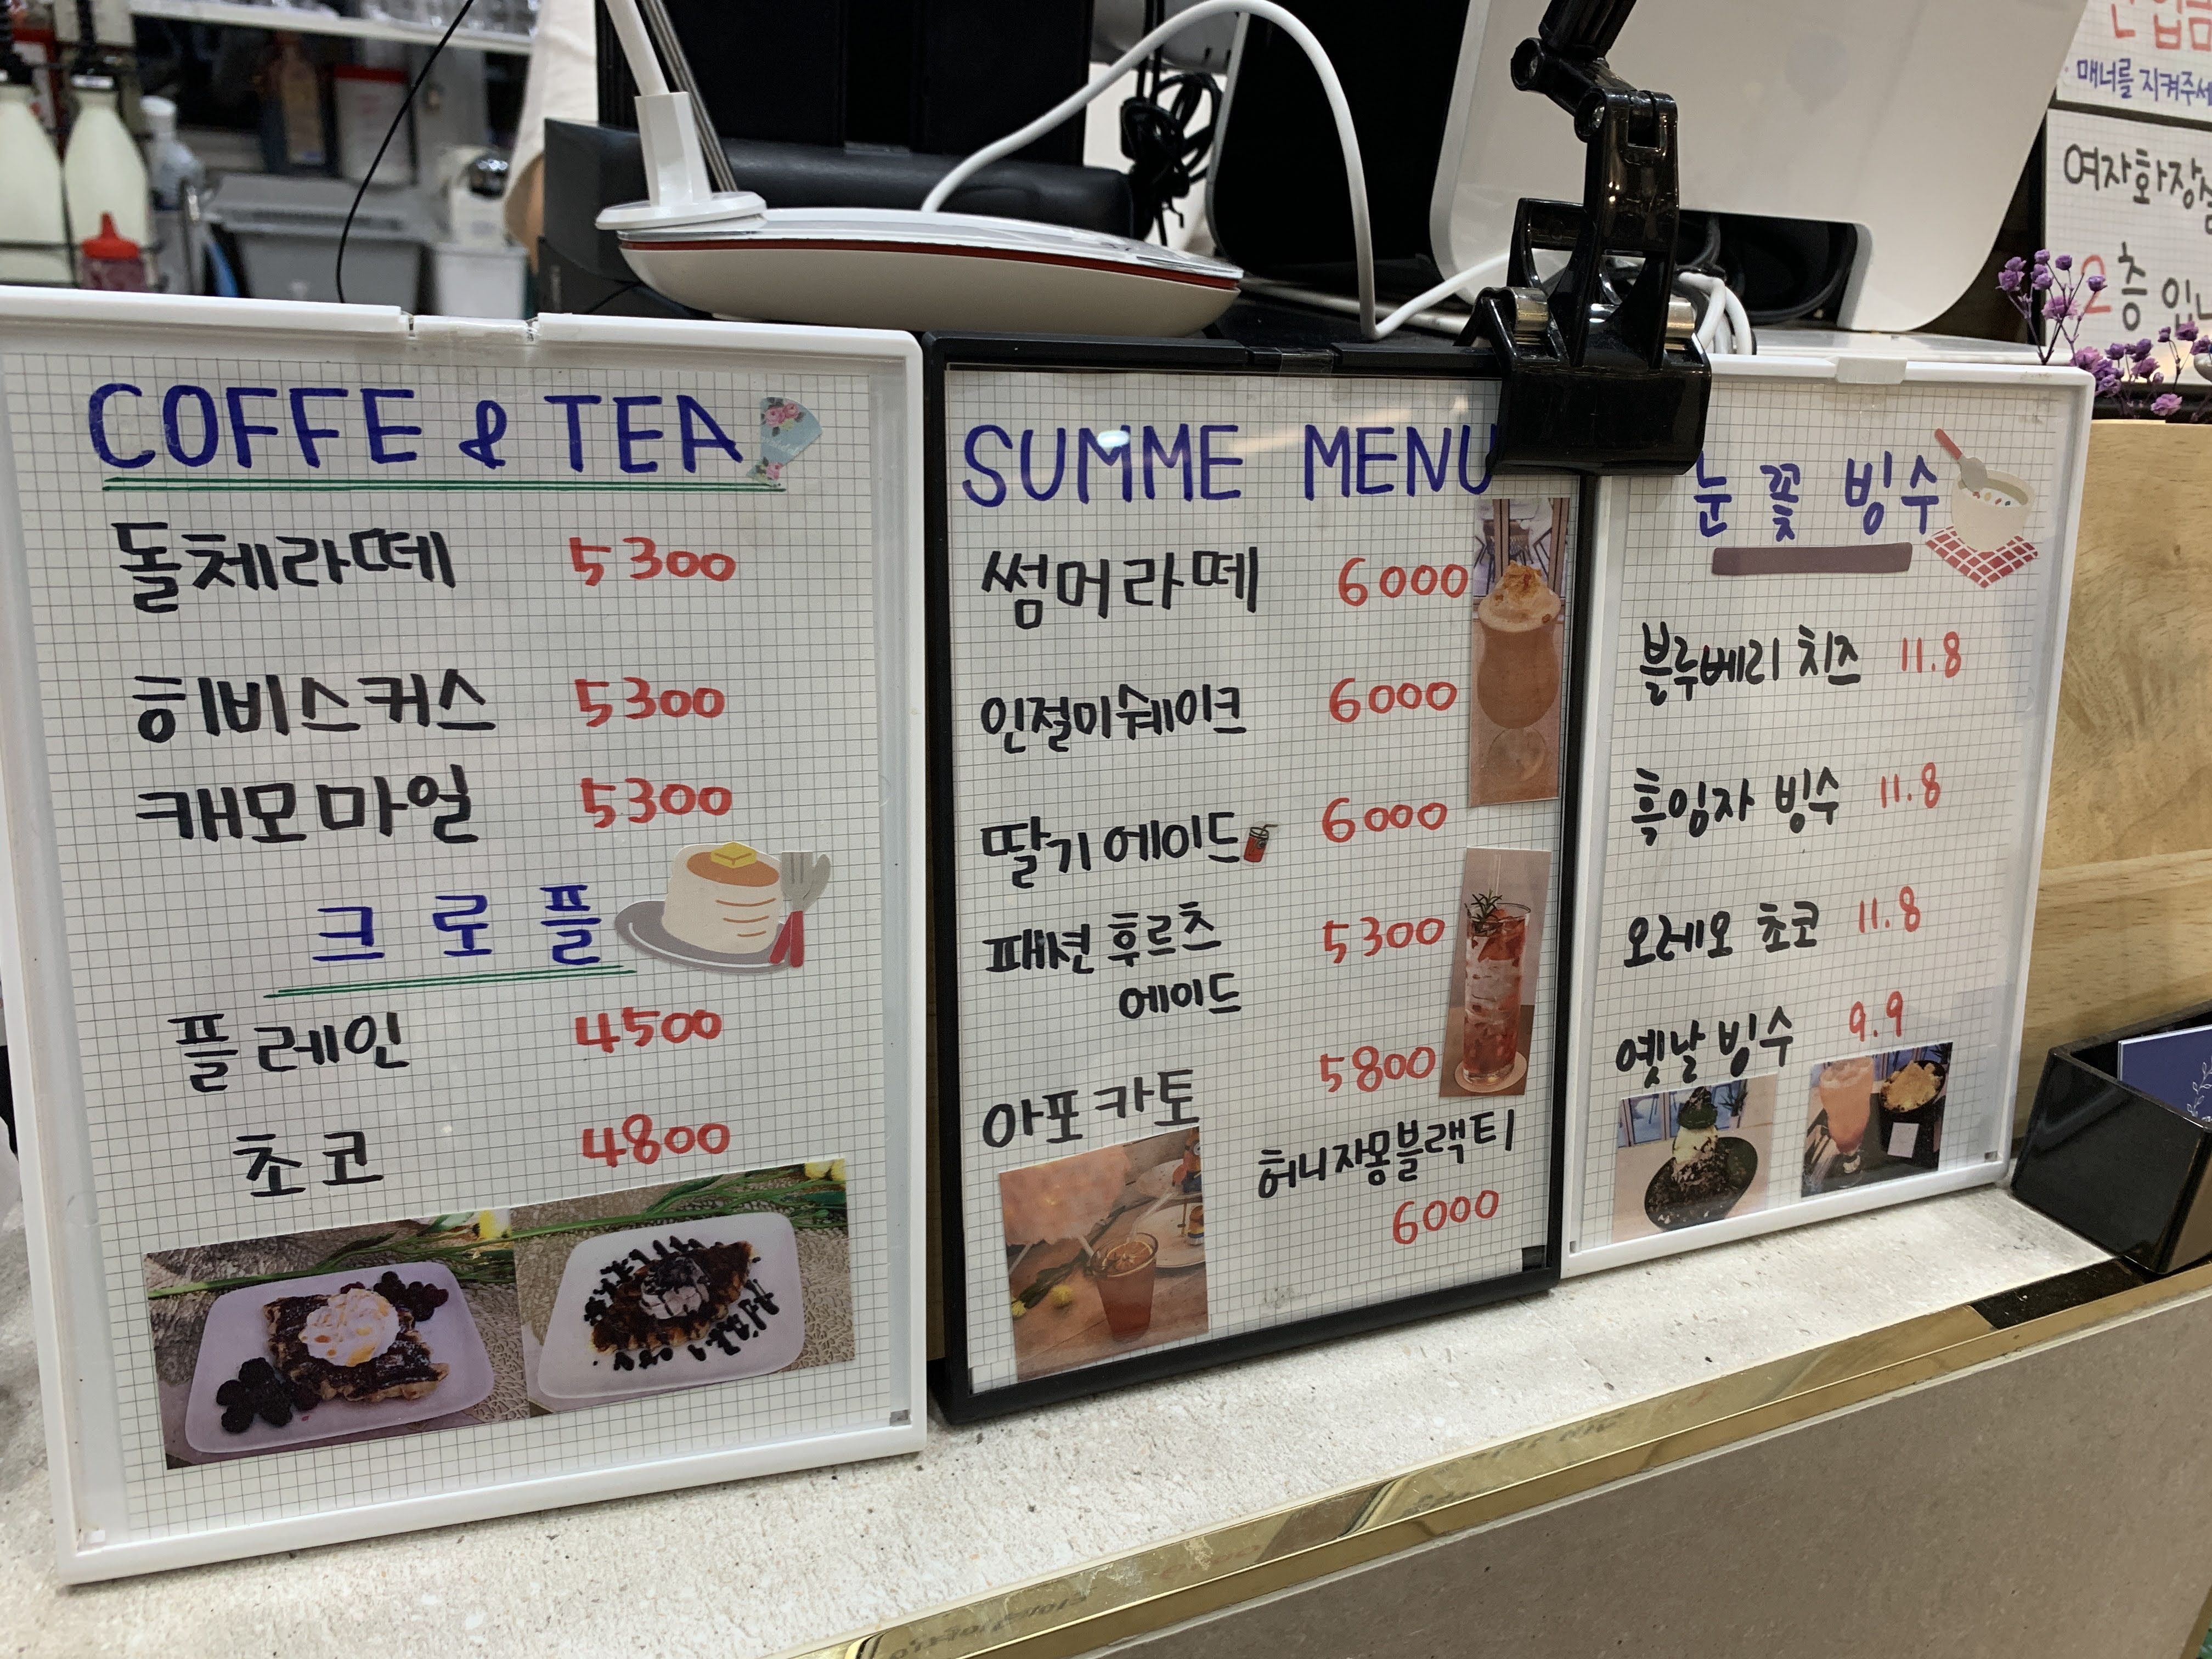 COFFE & TEA
돌체라떼 5300
히비스커스 5300
캐모마일 5300
크로플
플레인 4500
초코 4800
SUMME MENU
썸머라떼 6000
인절미쉐이크 6000
딸기에이드 6000
패션후르츠 5300
에이드
아포카토 5800
허니자몽블랙티
6000
눈꽃 빙수
블루베리 치즈 11.8
흑임자 빙수 11.8
오레오 초코 11.8
옛날 빙수 9.9
매너를 지켜주세
여자화장실
2층 입니